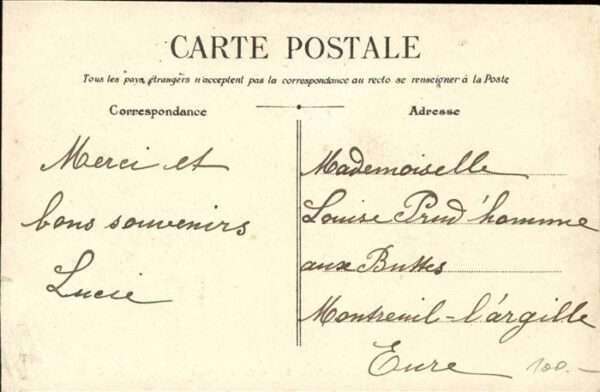 CARTE POSTALE
Tous les pays étrangers n'acceptent pas la correspondance au recto se renseigner à la Poste
Correspondance
Adresse
Merci et
bons souvenirs
Lucie
Mademoiselle
Louise Prud'homme
aux Buttes
Montreuil-l'argille
Eure
100.-